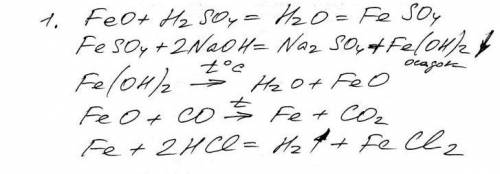 1. FeO + H₂SO₄ = H₂O = FeSO₄
FeSO₄ + 2NaOH = Na₂SO₄ + Fe(OH)₂ ↓
осадок
Fe(OH)₂ t°C → H₂O + FeO
FeO + CO t → Fe + CO₂
Fe + 2HCl = H₂↑ + FeCl₂